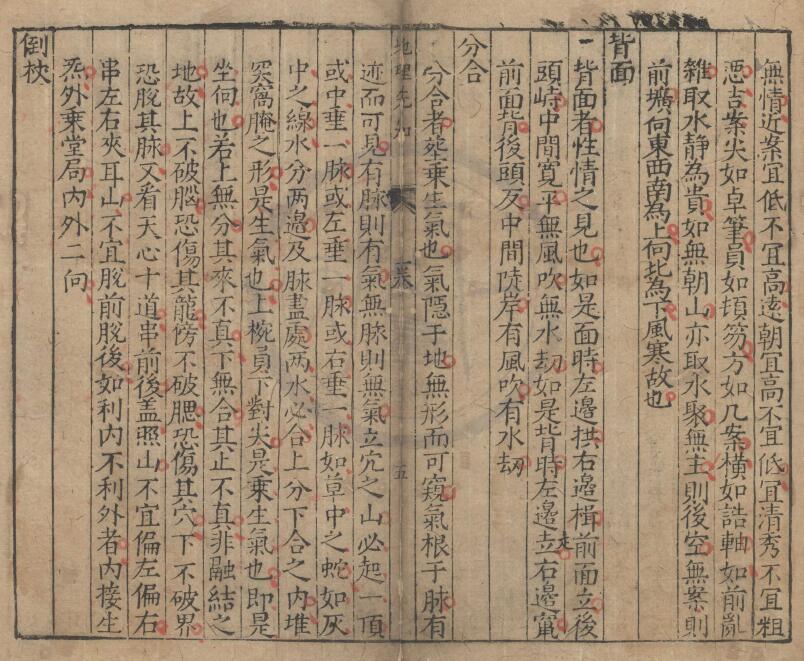 無情近案宜低不宜高遠朝宜高不宜低宜清秀不宜粗
惡吉案尖如卓筆員如頓笏方如几案橫如誥軸如前亂
雜取水静為貴如無朝山亦取水聚無主則後空無案則
前壙向東西南為上向北為下風寒故也
背面
一背面者性情之見也如是面時左邊拱右邊楫前面立後
頭峙中間寬平無風吹無水刼如是背時左邊走立右邊竄
前面背後頭反中間陡岸有風吹有水刼
分合
分合者塟乗生氣也氣隱于地無形而可窺氣根于脉有
地理先知 卷 五
迹而可見有脉則有氣無脉則無氣立穴之山必起一頂
或中垂一脉或左垂一脉或右垂一脉如草中之蛇如灰
中之線水分两邉及脉盡處两水必合上分下合之内堆
突窩腌之形是生氣也上椀員下對尖是乗生氣也即是
坐向也若上無分其來不真下無合其止不真非融結之
地故上不破腦恐傷其龍傍不破腮恐傷其穴下不破界
恐脫其脉又看天心十道串前後盖照山不宜偏左偏右
串左右夾耳山不宜脫前脫後如利内不利外者内接生
炁外乗堂局内外二向
倒杖